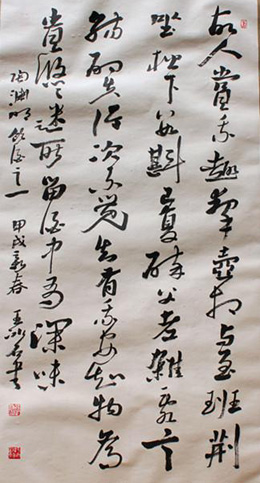 故人赏我趣挈壶相与至班荆
坐松下数斟已复醉父老杂乱言
觞酌失行次不觉知有我安知物为
贵悠悠迷所留酒中有深味
陶渊明饮酒之一 甲戌新春 书